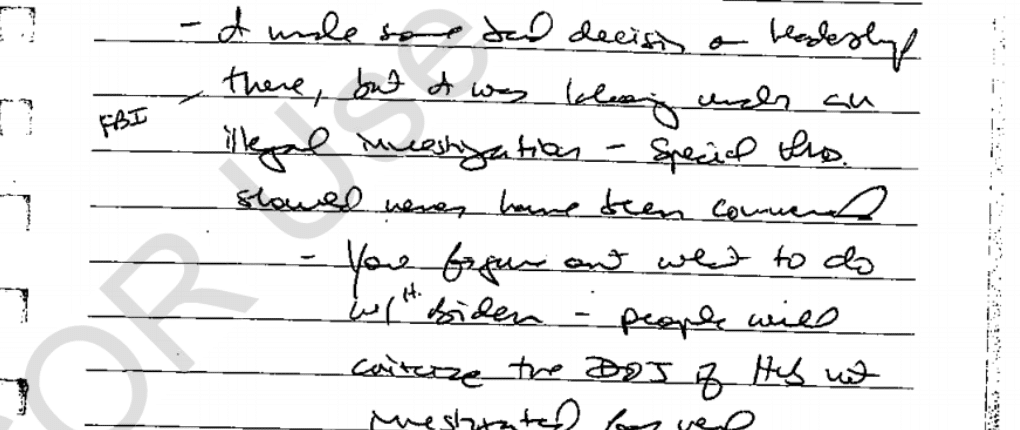 - I made some bad decisions on leadership
there, but I was laboring under an
FBI
illegal investigation - Special Pros.
should never have been commenced
- You figure out what to do
w/ H. Biden - people will
criticize the DOJ if he's not
investigated for real
FOR USE